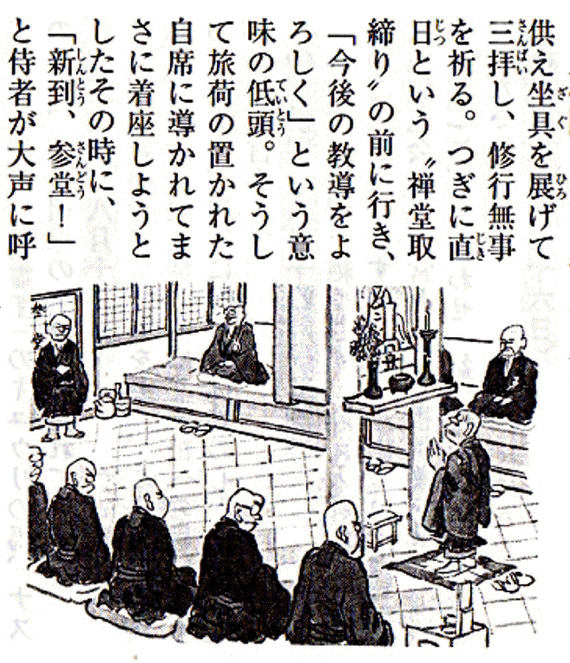 供え坐具を展げて
三拝し、修行無事
を祈る。つぎに直
日という〝禅堂取
締り〟の前に行き、
「今後の教導をよ
ろしく」という意
味の低頭。そうし
て旅荷の置かれた
自席に導かれてま
さに着座しようと
したその時に、
「新到、参堂！」
と侍者が大声に呼